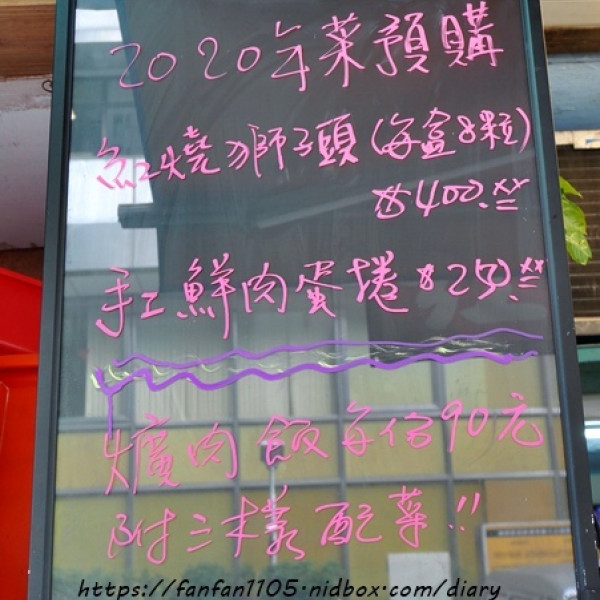 2020年菜預購
紅燒獅子頭(每盒8粒)
$400.xx
手工鮮肉蛋捲$250.xx
爌肉飯每份90元
附三樣配菜!!
https://fanfan1105.nidbox.com/diary